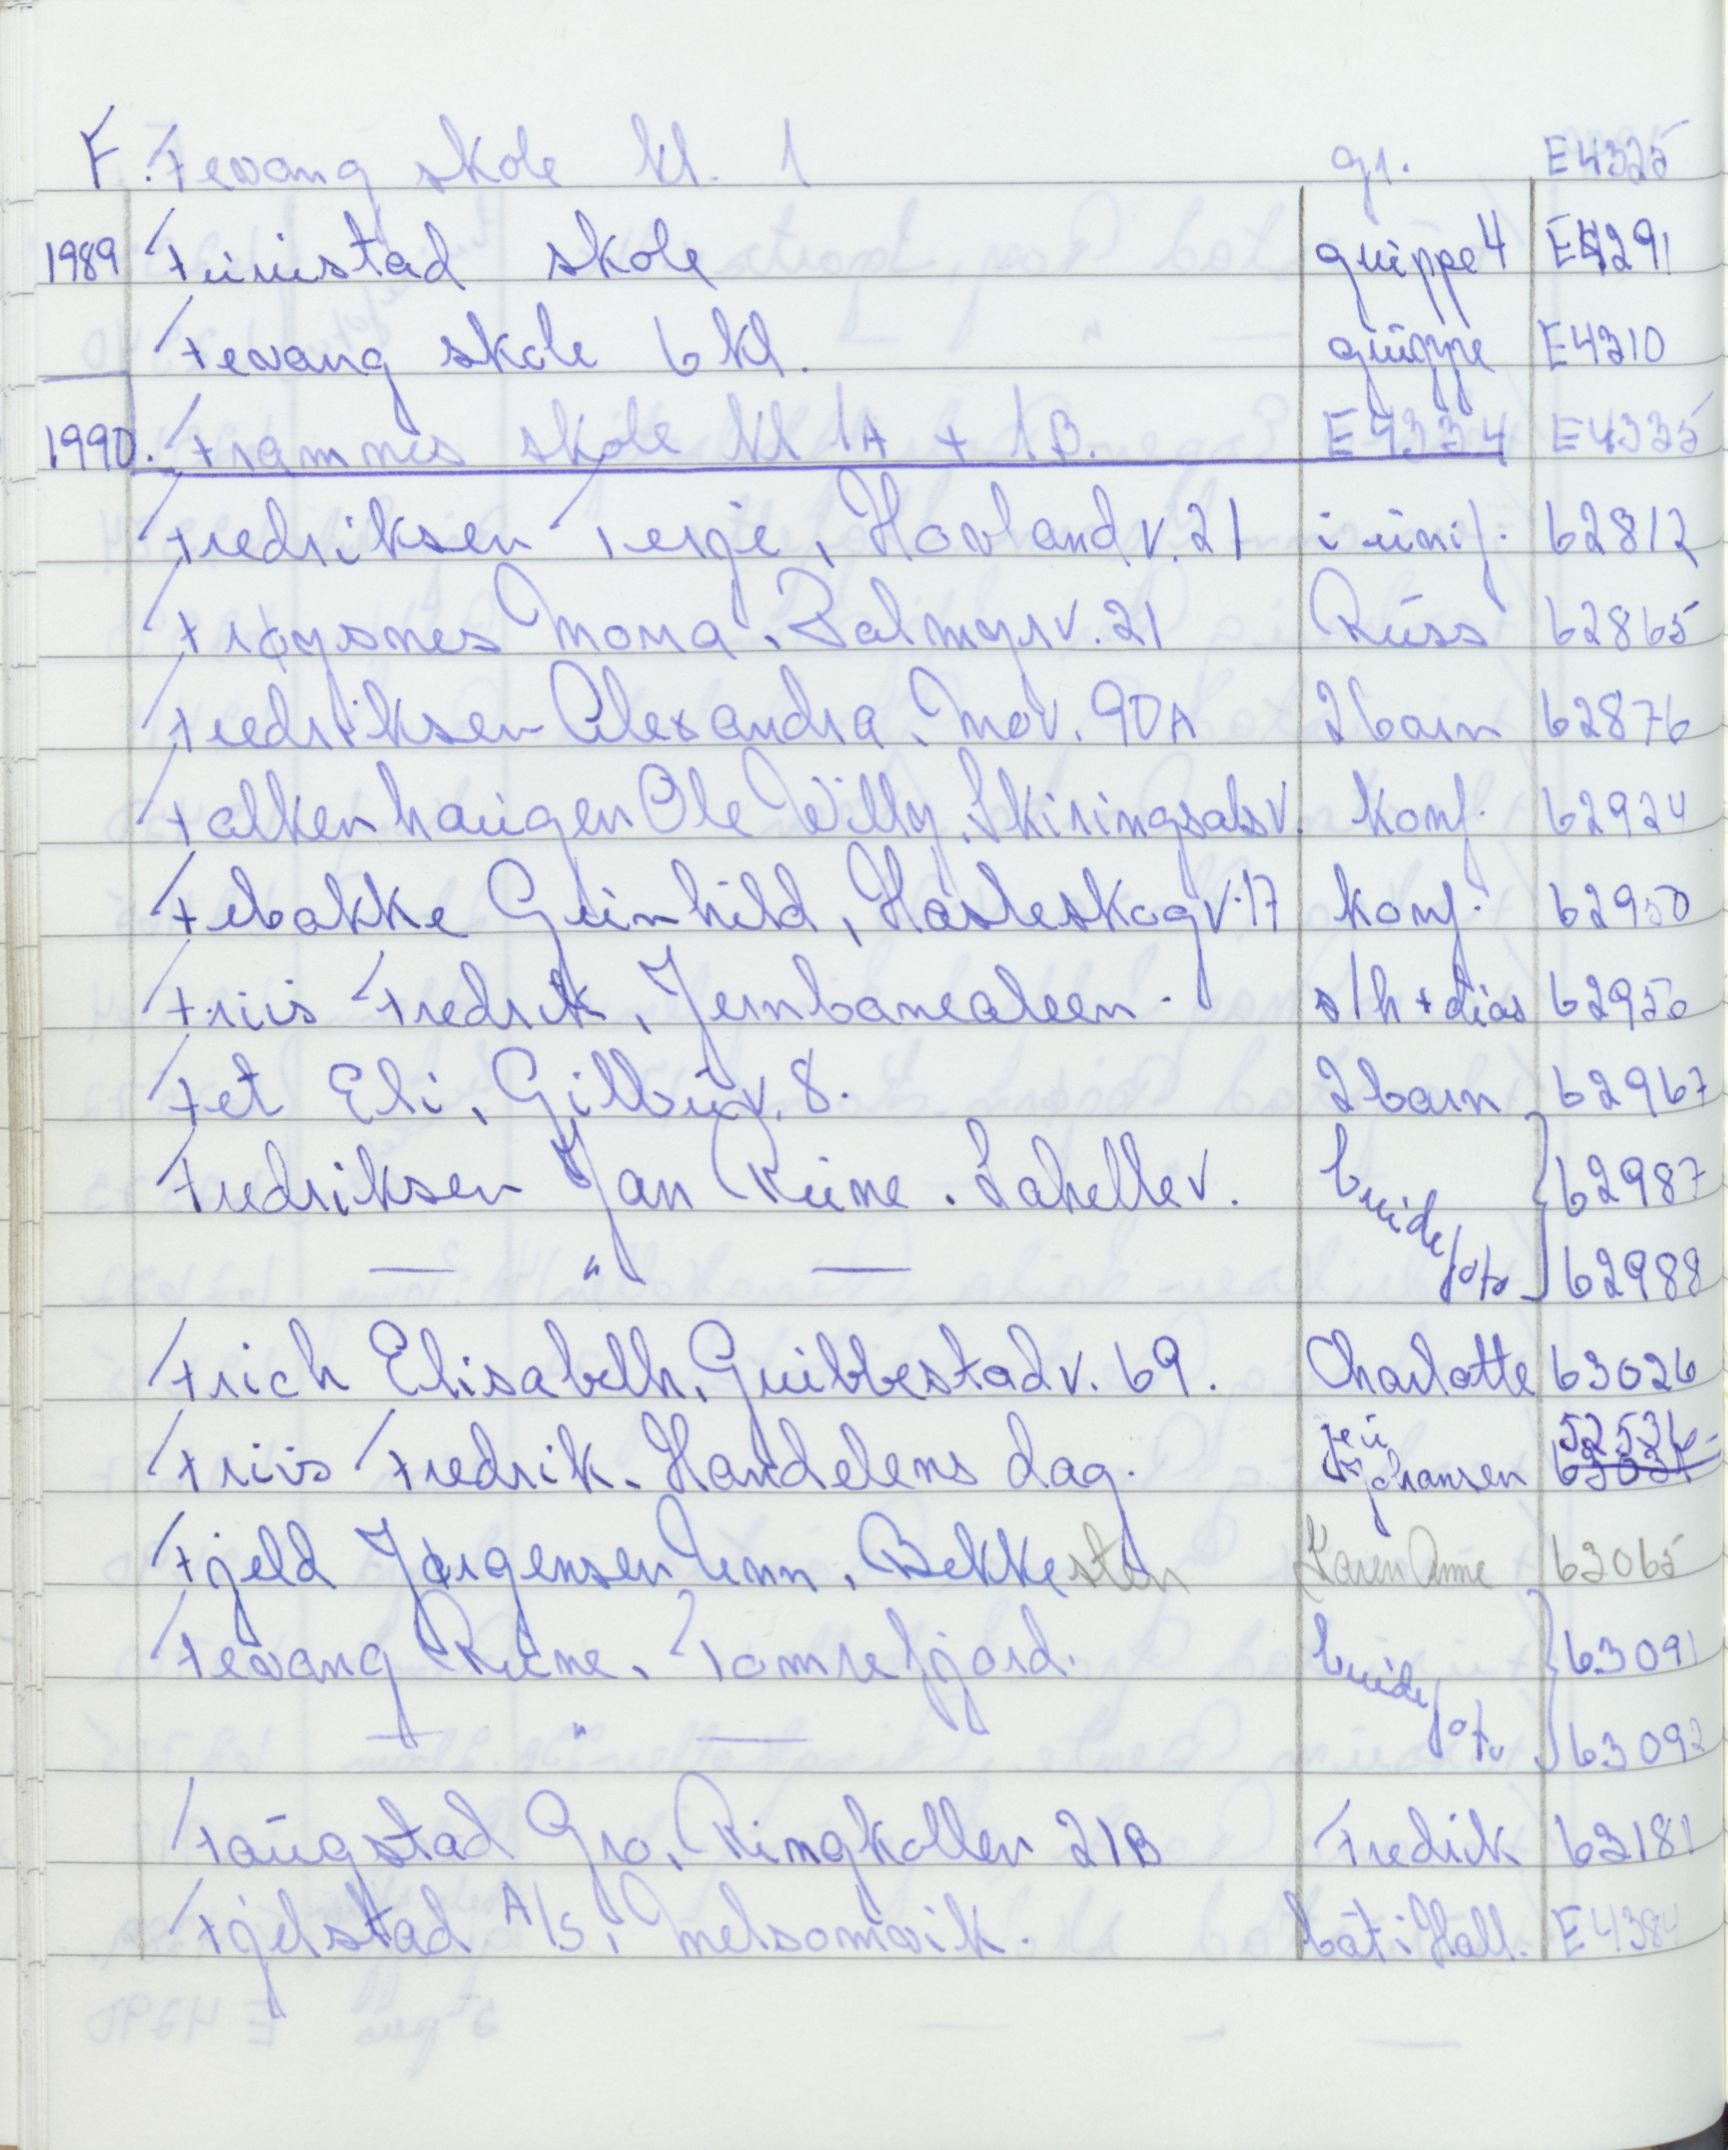 F. Fevang skole kl. 1 gr. E4325
1989 Furustad skole gruppe 4 E4291
Fevang skole 6 kl. gruppe E4310
1990. Framnes skole kl 1A + 1B. E4334 E4335
Fredriksen Terje, Hovland v. 21 i unif. 62812
Frøysnes Mona. Palmyrv. 21 Russ 62865
Fredriksen Alexandra. Mov. 90A 2 barn 62876
Falkenhaugen Ole Willy. Skiringsalsv. Konf. 62924
Febakke Gunhild, Hasleskogv. 17 Konf. 62950
Friis Fredrik, Jernbanealeen. s/h + dias 62950
Fet Eli, Gilbuv. 8. 2 barn 62967
Fredriksen Jan Rune. Lahellev. brudefoto 62987
— " — 62988
Frich Elisabeth, Grubbestadv. 69. Charlotte 63026
52536
Friis Fredrik. Handelens dag. Johansen 63037
Fjeld Jørgensen Unn, Bekkesten Karen Anne 63065
Fevang Rune. Tomrefjord. brudefoto 63091
— " — 63092
Faugstad Gro, Ringkollen 21B Fredrik 63181
Fjelstad A/S, Melsomvik. båt i Hall. E4384